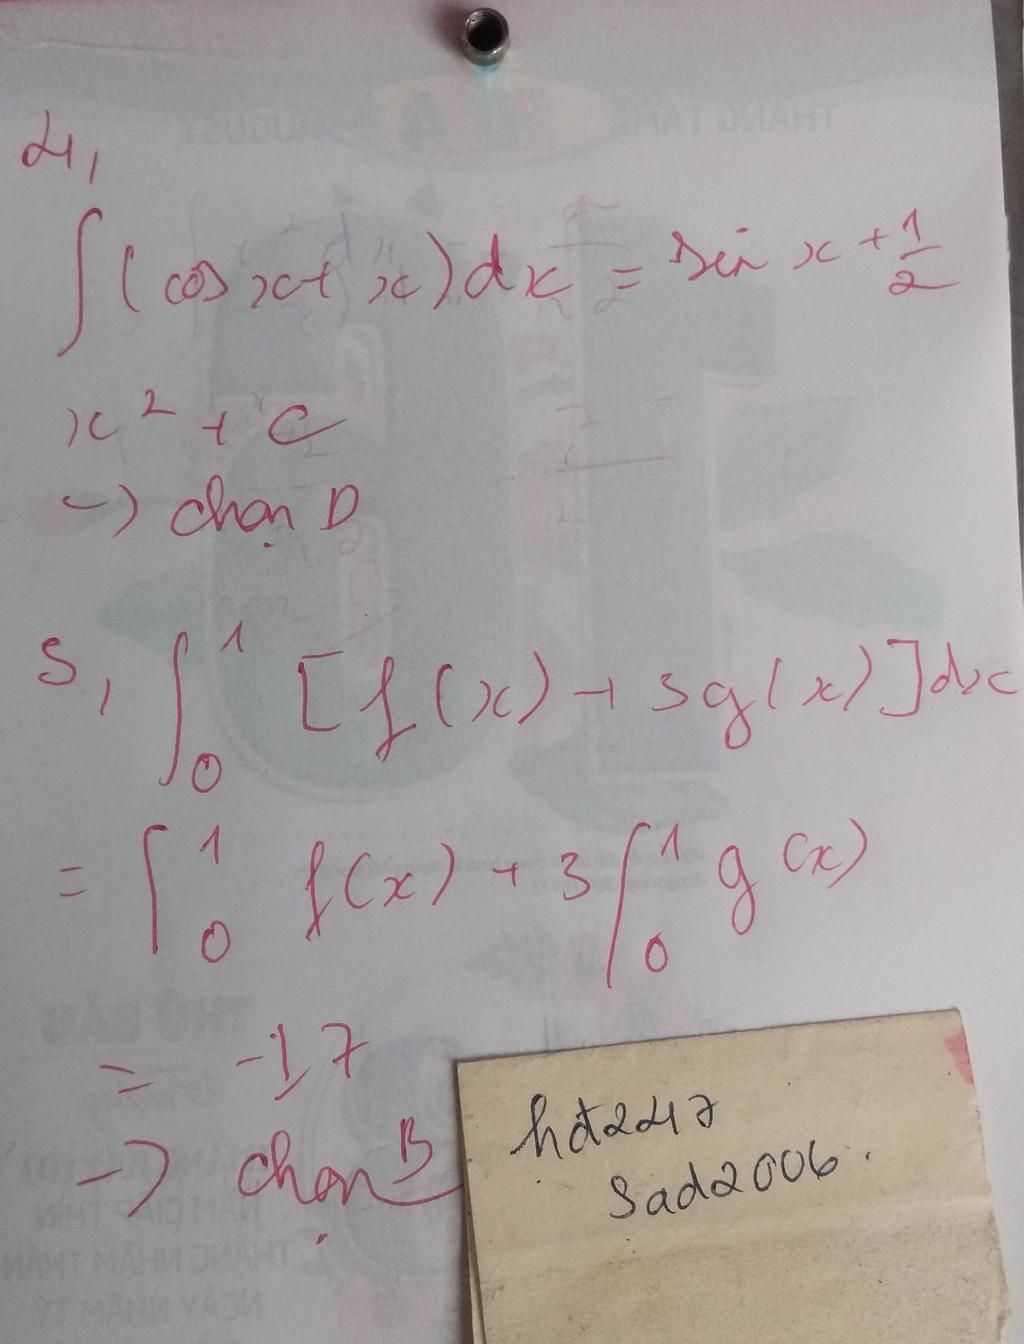 4,
∫ (cos x + x) dx = sin x + 1/2
x² + C
-> chọn D
5, ∫₀¹ [f(x) + 3g(x)] dx
= ∫₀¹ f(x) + 3∫₀¹ g(x)
= -17
-> chọn B
hđ247
Sad2006.